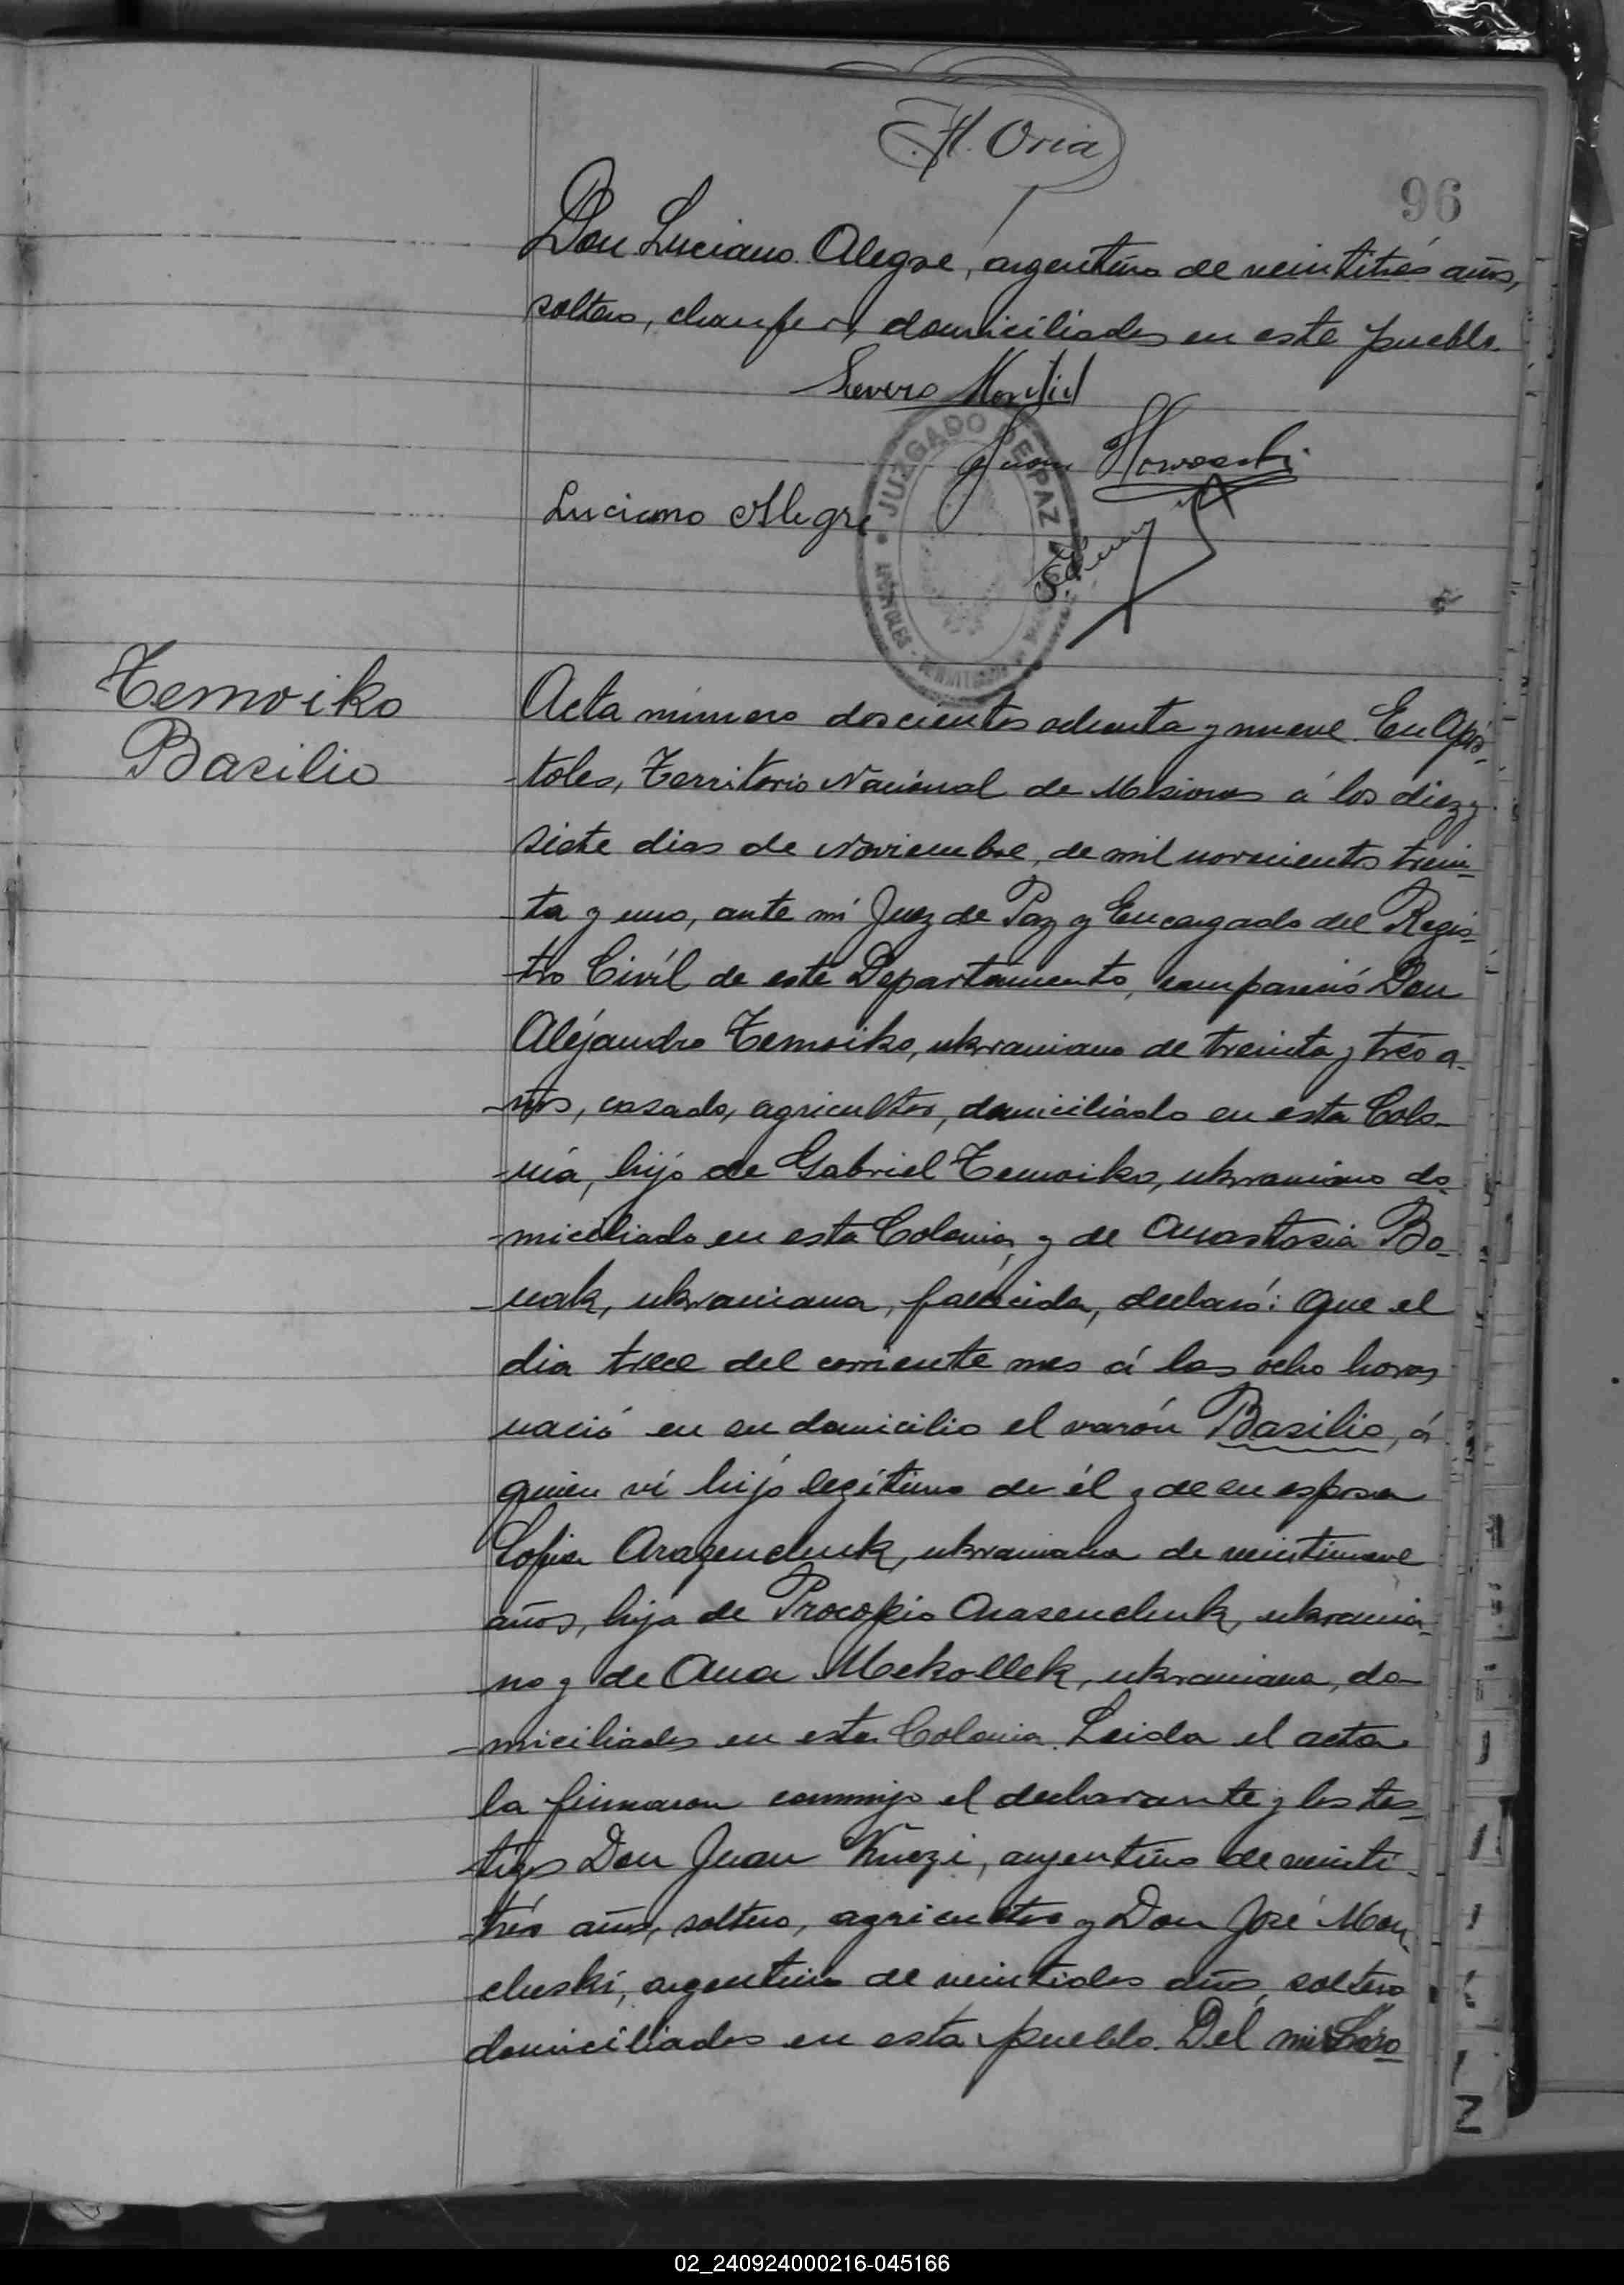 H. Oria
96
Don Luciano Alegre, argentino de veintitrés años,
soltero, chaufer, domiciliados en este pueblo.
Severo Montiel
Juan
Luciano Alegre
JUZGADO DE PAZ
APÓSTOLES
Temoiko
Basilio
Acta número doscientos ochenta y nueve. En Após-
toles, Territorio Nacional de Misiones á los diez y
siete dias de Noviembre, de mil novecientos trein-
ta y uno, ante mí Juez de Paz y Encargado del Regis-
tro Civíl de este Departamento, compareció Don
Alejandro Temoiko, ukraniano de treinta y trés a-
ños, casado, agricultor, domiciliado en esta Colo-
nia, hijo de Gabriel Temoiko, ukraniano do-
miciliado en esta Colonia, y de Anastasia Bo-
ukraniana, fallecida, declaró: Que el
dia trece del corriente mes á las ocho horas
nació en su domicilio el varón Basilio, á
quien ví hijo legítimo de él y de su esposa
Sofia Arazenchuk, ukraniana de veintinueve
años, hija de Procopio Arasenchuk, ukrania-
no y de Ana Mekollek, ukraniana, do-
miciliados en esta Colonia. Leida el acta
la firmaron conmigo el declarante y los tes-
tigos Don Juan argentino de veinti-
trés años, soltero, agricultor y Don José Mon-
cheski, argentino de veintidos años, soltero
domiciliados en esta pueblo. Del
02_240924000216-045166